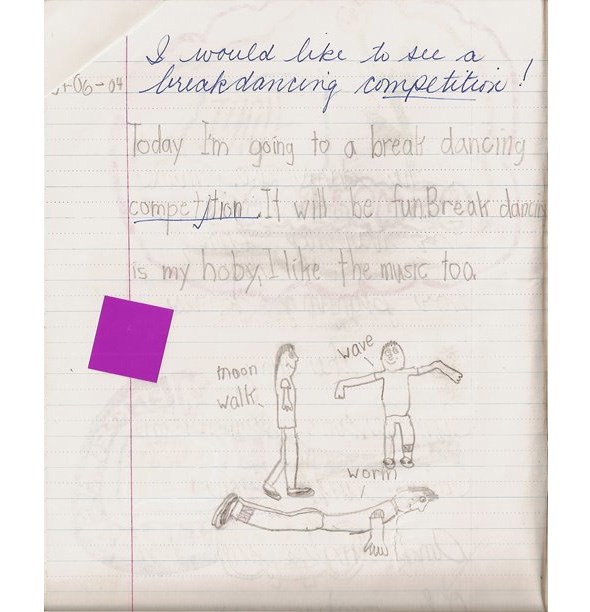 I would like to see a
breakdancing competition!
-06-04
Today I'm going to a break dancing
competition. It will be fun. Break dancing
is my hoby. I like the music too.
moon
walk
wave
worm